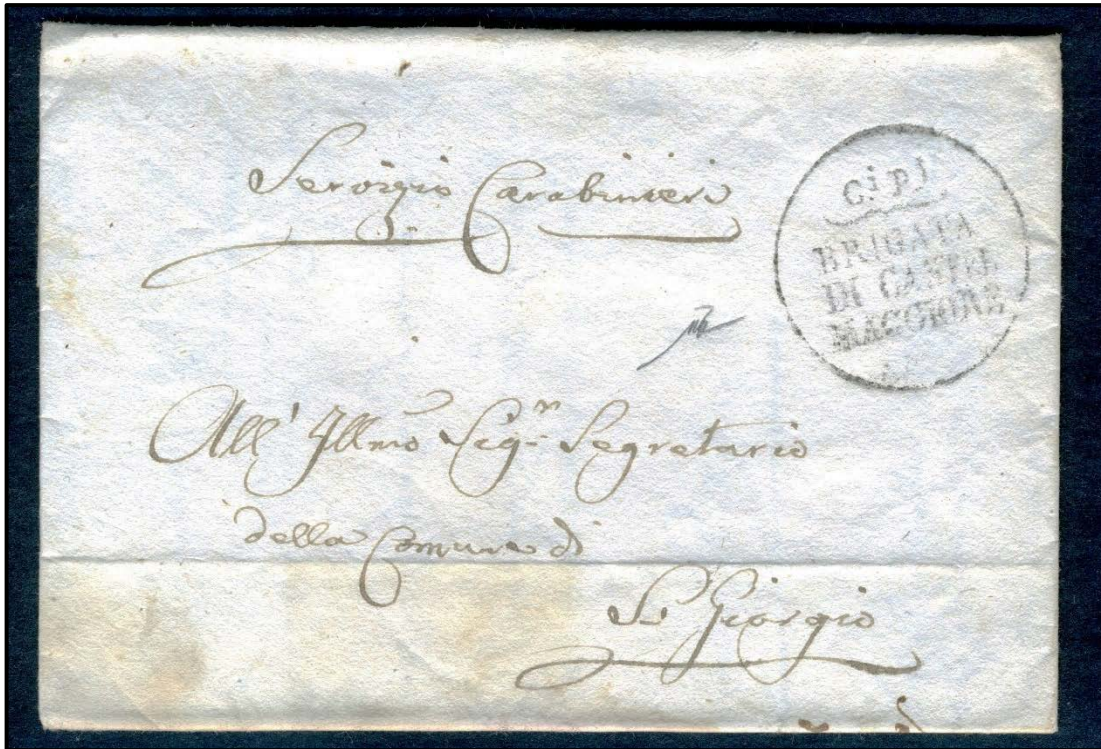 Servizio Carabinieri
BRIGATA
DI CASTEL
MAGGIORE
All' Illmo Sigr. Segretario
della Comune di
Sn. Giorgio